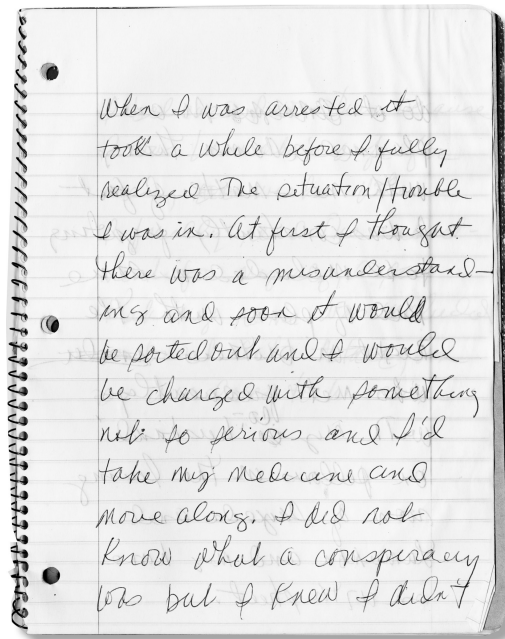 When I was arrested it
took a while before I fully
realized The situation/trouble
I was in. At first I thought
there was a misunderstand-
ing and soon it would
be sorted out and I would
be charged with something
not so serious and I'd
take my medicine and
move along. I did not
Know what a conspiracy
was but I knew I didn't